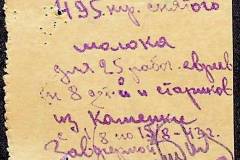 495 кр. снятого
молока
для 25 рабоч. евреев
и 8 дет. й и стариков
из Каменки
1/8 по 15/8-43г.
Завфермой